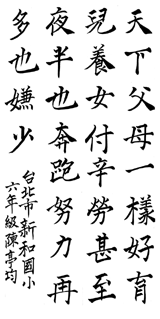 天下父母一樣好育
兒養女付辛勞甚至
夜半也奔跑努力再
多也嫌少
台北市新和國小
六年級陳亭均